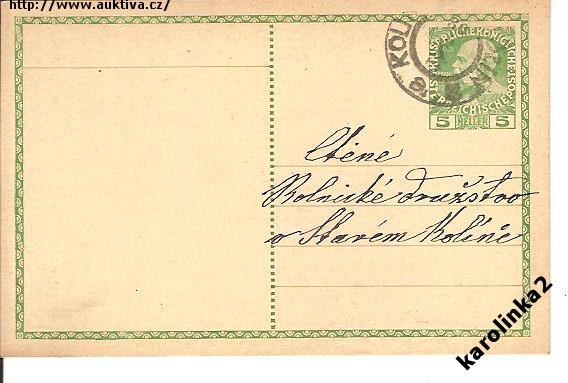 http://www.auktiva.cz/
KOLÍN
KAIS. KÖNIGLICHE ÖSTERREICHISCHE POST
5 HELLER 5
Ctěné
Rolnické družstvo
v Starém Kolíně
karolinka2